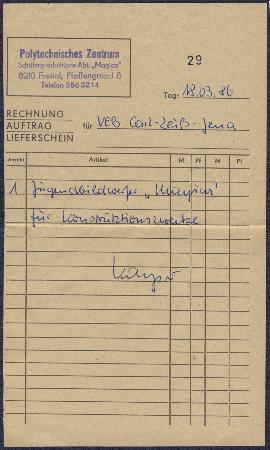 Polytechnisches Zentrum
Schülerproduktions-Abt. „Magica"
8210 Freital, Pfaffengrund 8
Telefon 886 3214
29
Tag: 18.03.86
RECHNUNG
AUFTRAG für VEB Carl-Zeiß-Jena
LIEFERSCHEIN
Anzahl Artikel M Pf M Pf
1 Jugendbildwerfer
für Konstruktionszwecke